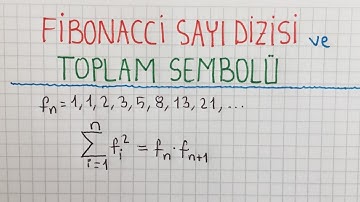 FİBONACCİ SAYI DİZİSİ ve
TOPLAM SEMBOLÜ
fₙ = 1, 1, 2, 3, 5, 8, 13, 21, ...
∑ᵢ₌₁ⁿ fᵢ² = fₙ · fₙ₊₁